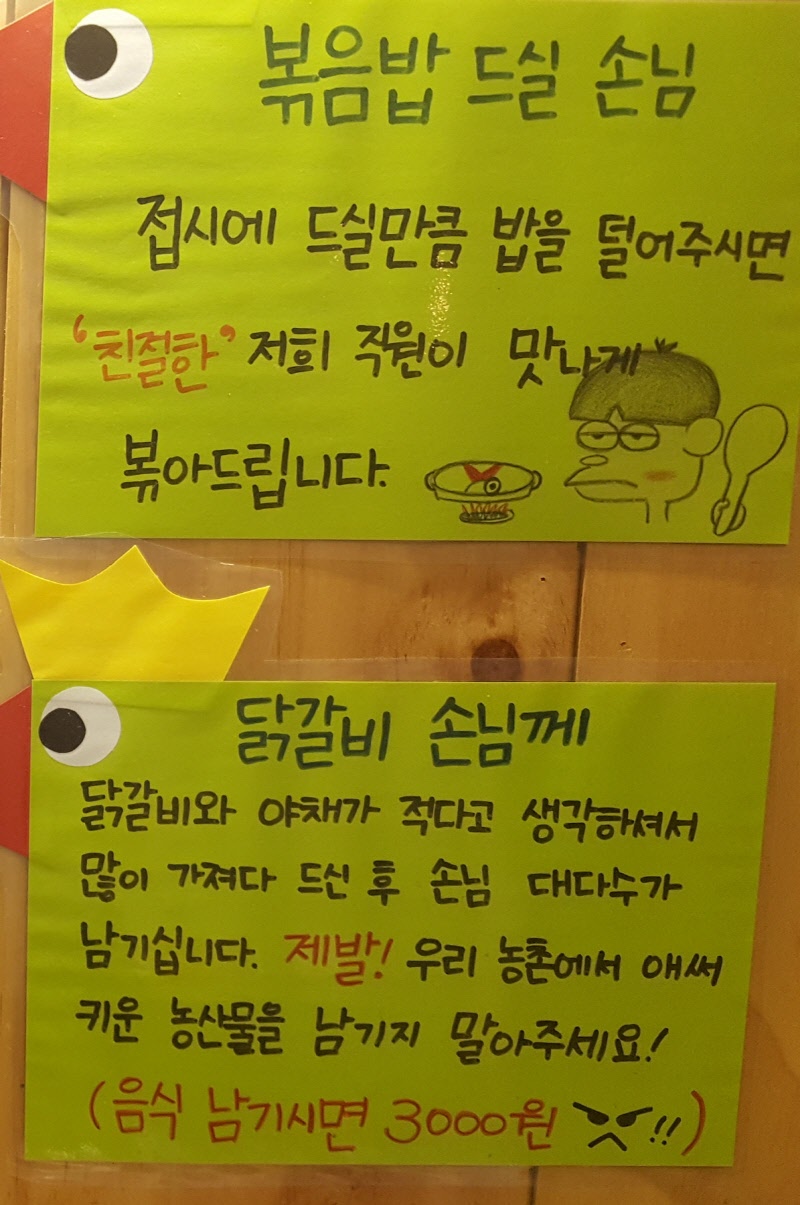 볶음밥 드실 손님
접시에 드실만큼 밥을 덜어주시면
'친절한' 저희 직원이 맛나게
볶아드립니다.
닭갈비 손님께
닭갈비와 야채가 적다고 생각하셔서
많이 가져다 드신 후 손님 대다수가
남기십니다. 제발! 우리 농촌에서 애써
키운 농산물을 남기지 말아주세요!
(음식 남기시면 3000원 !!)